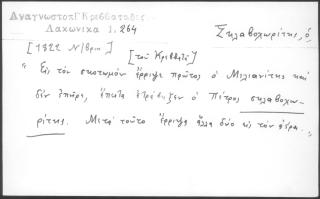 Αναγνωστοπ Κρεββατάς
Λακωνικα 1, 264
Σκλαβοχωρίτης, ὁ
[1822 Ν/βρη]
[τοῦ Κρεββατᾶ]
"Εἰς τὸν σκοτωμὸν ἔρριψε πρῶτος ὁ Μηλιανίτης καὶ
δὲν ἐπῆρε, ἔπειτα ἐτράβηξεν ὁ Πέτρος σκλαβοχω-
ρίτης. Μετὰ τοῦτο ἔρριψε ἄλλα δύο εἰς τὸν ἀέρα.